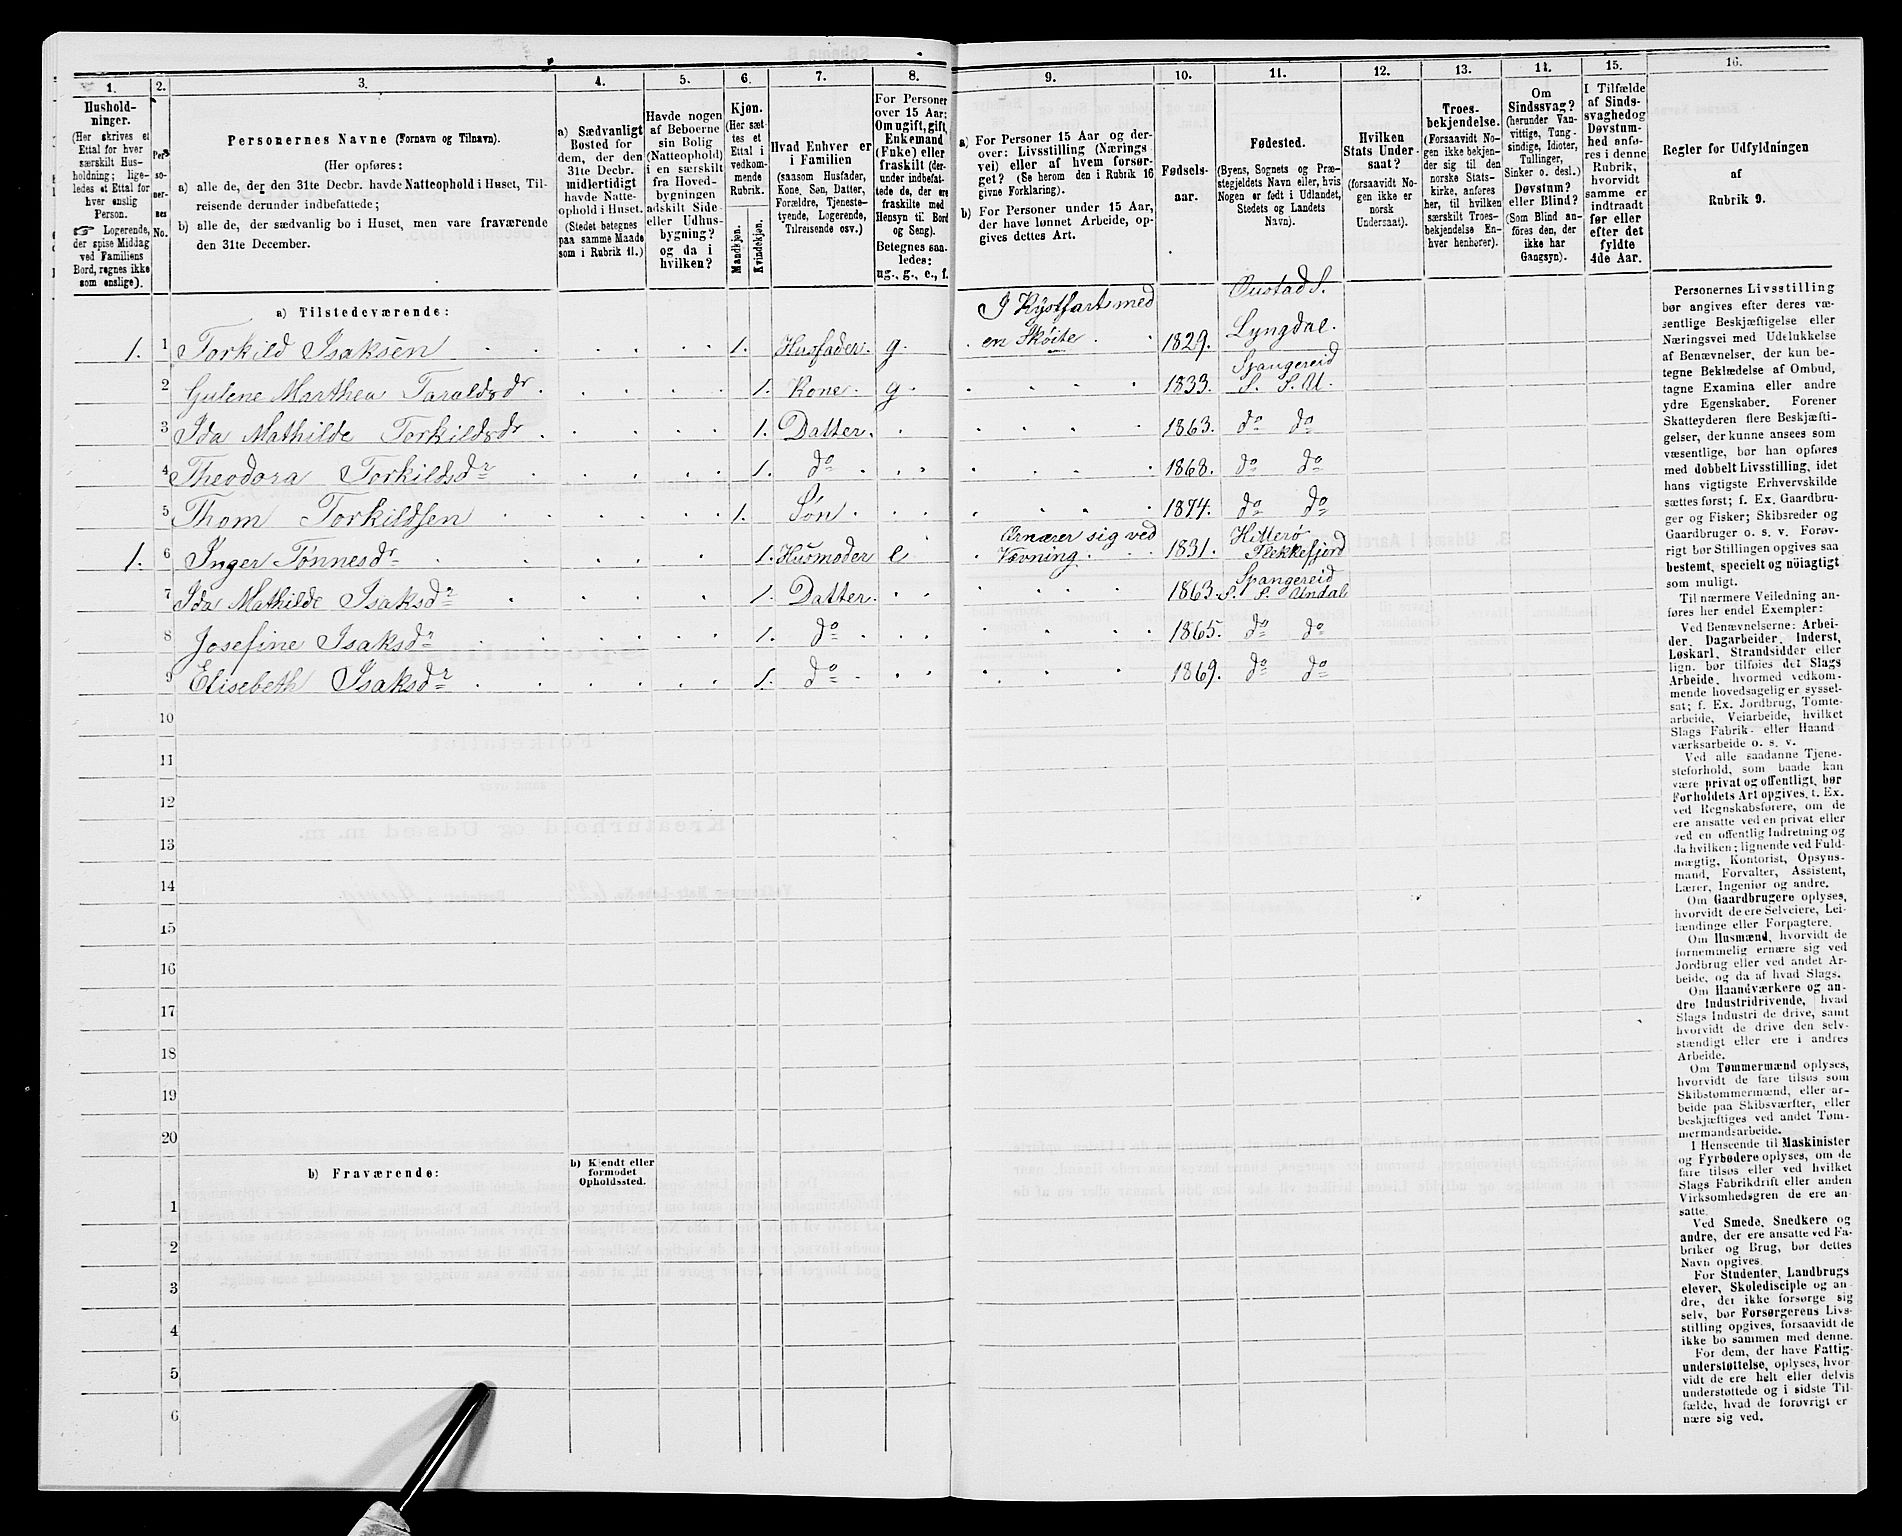 1.
Husholdninger.
(Her skrives et Ettal for hver særskilt Husholdning; ligeledes et Ettal for hver enslig Person.
☞ Logerende, der spise Middag ved Familiens Bord, regnes ikke som enslige).
2.
Personernes No.
3.
Personernes Navne (Fornavn og Tilnavn).
(Her opføres:
a) alle de, der den 31te Decbr. havde Natteophold i Huset, Tilreisende derunder indbefattede;
b) alle de, der sædvanlig bo i Huset, men vare fraværende den 31te December.
4.
a) Sædvanligt Bosted for dem, der den 31te Decbr. midlertidigt havde Natteophold i Huset. (Stedet betegnes paa samme Maade som i Rubrik 11.)
5.
Havde nogen af Beboerne sin Bolig (Natteophold) i en særskilt fra Hovedbygningen adskilt Side- eller Udhusbygning? og da i hvilken?
6.
Kjøn.
(Her sættes et Ettal i vedkommende Rubrik.
Mandkjøn.
Kvindekjøn.
7.
Hvad Enhver er i Familien
(saasom Husfader, Kone, Søn, Datter, Forældre, Tjenestetyende, Logerende, Tilreisende osv.)
8.
For Personer over 15 Aar: Om ugift, gift, Enkemand (Enke) eller fraskilt (derunder indbefattede de, der ere fraskilte med Hensyn til Bord og Seng).
Betegnes saaledes: ug., g., e., f.
9.
a) For Personer 15 Aar og derover: Livsstilling (Næringsvei) eller af hvem forsørget? (Se herom den i Rubrik 16 givne Forklaring).
b) For Personer under 15 Aar, der have lønnet Arbeide, opgives dettes Art.
10.
Fødselsaar.
11.
Fødested.
(Byens, Sognets og Præstegjeldets Navn eller, hvis Nogen er født i Udlandet, Stedets og Landets Navn).
12.
Hvilken Stats Undersaat?
(forsaavidt Nogen ikke er norsk Undersaat).
13.
Troesbekjendelse.
(Forsaavidt Nogen ikke bekjender sig til den norske Statskirke, anføres her, til hvilken særskilt Troesbekjendelse Enhver henhører).
14.
Om Sindssvag? (herunder Vanvittige, Tungsindige, Idioter, Tullinger, Sinker o. desl.) Døvstum? eller Blind? (Som Blind anføres den, der ikke har Gangsyn).
15.
I Tilfælde af Sindssvaghed og Døvstumhed anføres i denne Rubrik, hvorvidt samme er indtraadt før eller efter det fyldte 4de Aar.
16.
Regler for Udfyldningen
af
Rubrik 9.
a) Tilstedeværende:
1. 1 Torkild Isaksen 1. Husfader. g. I Kystfart med en Skøite 1829. Lyngdal.
2 Gulene Marthea Taraldsdr 1. Kone. g 1833. Spangereid S. S. U.
3 Ida Mathilde Torkildsdr 1. Datter. 1863. do do
4 Theodora Torkildsdr 1. do 1868. do do
5 Thom Torkildsen 1. Søn 1874. do do
1. 6 Inger Tønnesdr 1. Husmoder e Ernærer sig ved Vævning. 1831. Hitterø Flekkefjord
7 Ida Mathilde Isaksdr 1. Datter. 1863. Spangereid S. S. Undal
8 Josefine Isaksdr 1. do 1865. do do
9 Elisebeth Isaksdr 1. do 1869. do do
10
11
12
13
14
15
16
17
18
19
20
b) Fraværende:
b) Kjendt eller formodet Opholdssted.
1
2
3
4
5
6
Personernes Livsstilling bør angives efter deres væsentlige Beskjæftigelse eller Næringsvei med Udelukkelse af Benævnelser, der kun betegne Beklædelse af Ombud, tagne Examina eller andre ydre Egenskaber. Forener Skatteyderen flere Beskjæftigelser, der kunne ansees som væsentlige, bør han opføres med dobbelt Livsstilling, idet hans vigtigste Erhvervskilde sættes først; f. Ex. Gaardbruger og Fisker; Skibsreder og Gaardbruger o. s. v. Forøvrigt bør Stillingen opgives saa bestemt, specielt og nøiagtigt som muligt.
Til nærmere Veiledning anføres her endel Exempler:
Ved Benævnelserne: Arbeider, Dagarbeider, Inderst, Løskarl, Strandsidder eller lign. bør tilføies det Slags Arbeide, hvormed vedkommende hovedsagelig er sysselsat; f. Ex. Jordbrug, Tomtearbeide, Veiarbeide, hvilket Slags Fabrik- eller Haandværksarbeide o. s. v.
Ved alle saadanne Tjenesteforhold, som baade kan være privat og offentligt, bør Forholdets Art opgives, t. Ex. ved Regnskabsførere, om de ere ansatte ved en privat eller ved en offentlig Indretning og da hvilken; lignende ved Fuldmægtig, Kontorist, Opsynsmand, Forvalter, Assistent, Lærer, Ingeniør og andre.
Om Gaardbrugere oplyses, hvorvidt de ere Selveiere, Leilændinge eller Forpagtere.
Om Husmænd, hvorvidt de fornemmelig ernære sig ved Jordbrug eller ved andet Arbeide, og da af hvad Slags.
Om Haandværkere og andre Industridrivende, hvad Slags Industri de drive, samt hvorvidt de drive den selvstændigt eller ere i andres Arbeide.
Om Tømmermænd oplyses, hvorvidt de fare tilsøs som Skibstømmermænd, eller arbeide paa Skibsværfter, eller beskjæftiges ved andet Tømmermandsarbeide.
I Henseende til Maskinister og Fyrbødere oplyses, om de fare tilsøs eller ved hvilket Slags Fabrikdrift eller anden Virksomhedsgren de ere ansatte.
Ved Smede, Snedkere og andre, der ere ansatte ved Fabriker og Brug, bør dettes Navn opgives.
For Studenter, Landbrugselever, Skoledisciple og andre, der ikke forsørge sig selv, bør Forsørgerens Livsstilling opgives, forsaavidt de ikke bo sammen med denne.
For dem, der have Fattigunderstøttelse, oplyses, hvorvidt de ere helt eller delvis understøttede og i sidste Tilfælde, hvad de forøvrigt ernære sig ved.